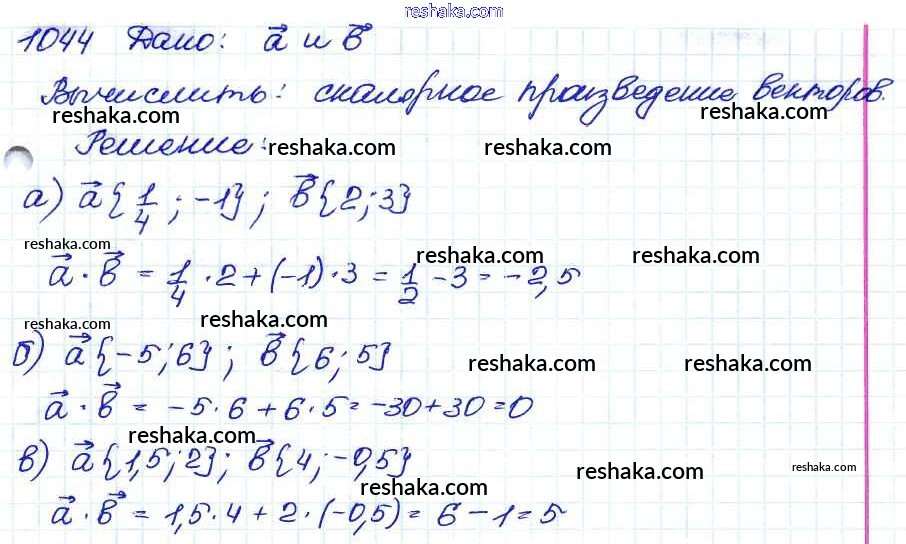 reshaka.com
1044 Дано: a⃗ и b⃗
Вычислить: скалярное произведение векторов.
reshaka.com reshaka.com
Решение: reshaka.com reshaka.com
а) a⃗{1/4; -1}; b⃗{2; 3}
reshaka.com reshaka.com reshaka.com
a⃗ · b⃗ = 1/4 · 2 + (-1) · 3 = 1/2 - 3 = -2,5
reshaka.com
б) a⃗{-5; 6}; b⃗{6; 5}
reshaka.com reshaka.com
a⃗ · b⃗ = -5 · 6 + 6 · 5 = -30 + 30 = 0
reshaka.com
в) a⃗{1,5; 2}; b⃗{4; -0,5}
reshaka.com reshaka.com
reshaka.com
a⃗ · b⃗ = 1,5 · 4 + 2 · (-0,5) = 6 - 1 = 5